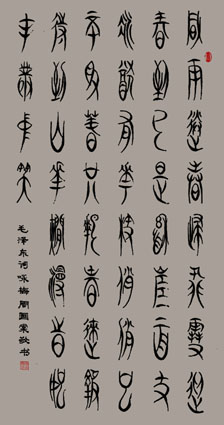 風雨送春歸飛雪迎
春到已是懸崖百丈
冰猶有花枝俏俏也
不爭春只把春來報
待到山花爛漫時她
在叢中笑
毛泽东词咏梅周国敬书